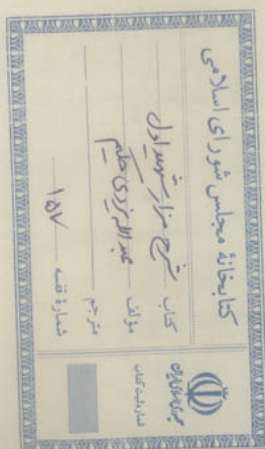 کتابخانهٔ مجلس شورای اسلامی
کتاب شرح مزار شهید اول
مؤلف عبدالله حکیم
مترجم
شمارهٔ قفسه ۱۵۷
جمهوری اسلامی ایران
شماره ثبت کتاب